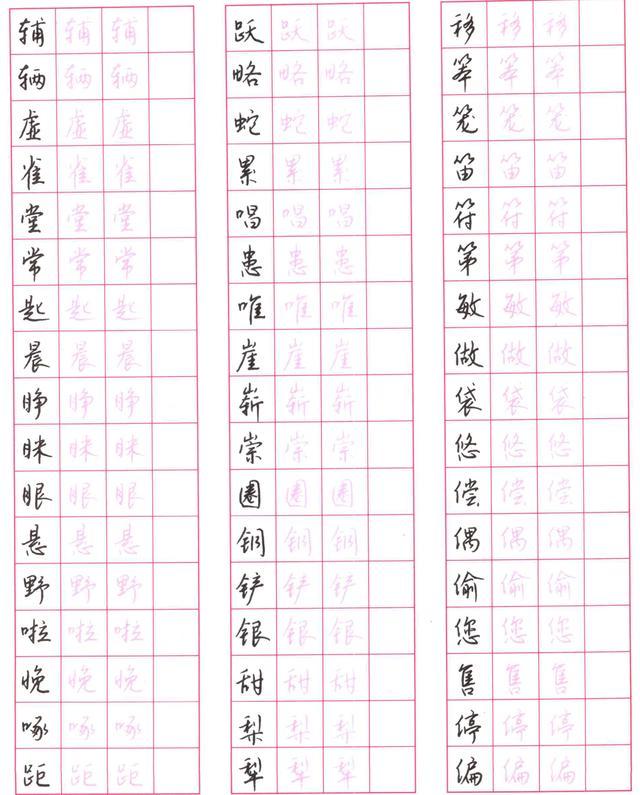 辅 辅 辅
辆 辆 辆
虚 虚 虚
雀 雀 雀
堂 堂 堂
常 常 常
匙 匙 匙
晨 晨 晨
睁 睁 睁
眯 眯 眯
眼 眼 眼
悬 悬 悬
野 野 野
啦 啦 啦
晚 晚 晚
啄 啄 啄
距 距 距
跃 跃 跃
略 略 略
蛇 蛇 蛇
累 累 累
唱 唱 唱
患 患 患
唯 唯 唯
崖 崖 崖
崭 崭 崭
崇 崇 崇
圈 圈 圈
铜 铜 铜
铲 铲 铲
银 银 银
甜 甜 甜
梨 梨 梨
犁 犁 犁
移 移 移
笨 笨 笨
笼 笼 笼
笛 笛 笛
符 符 符
第 第 第
敏 敏 敏
做 做 做
袋 袋 袋
悠 悠 悠
偿 偿 偿
偶 偶 偶
偷 偷 偷
您 您 您
售 售 售
停 停 停
偏 偏 偏